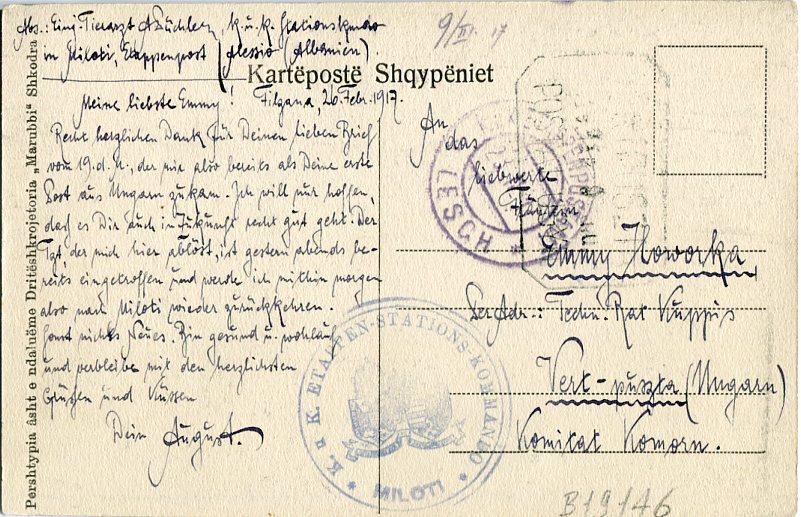 Abs.: Einj-Tierarzt A. Züchlerz, k. u. k. Stationskmdo
in Miloti, Etappenpost (Alessio Albanien).
Kartëpostë Shqypëniet
9/III. 17
Meine liebste Emmy! Filgana, 26. Febr. 1917.
Recht herzlichen Dank für Deinen lieben Brief
vom 19. d. M., der mir also bereits als Deine erste
Post aus Ungarn zukam. Ich will nur hoffen,
daß es Dir auch in Zukunft recht gut geht. Der
Tgt, der mich hier ablöst, ist gestern abends be-
reits eingetroffen und werde ich mithin morgen
also nach Miloti wieder zurückkehren.
Sonst nichts Neues. Bin gesund u. wohlauf
und verbleibe mit den herzlichsten
Grüßen und Küssen
Dein August.
An
das
liebwerte
Fräulein
Emmy Noworka
Per Adr.: Techn. Rat Kuppis
Vert-puszta (Ungarn)
Komitat Komorn.
LESCH
K. u K. ETAPPEN-STATIONS-KOMMANDO
* MILOTI *
B19146
Pershtypia âsht e ndaluëme Dritëshkrojetoria „Marubbi“ Shkodra